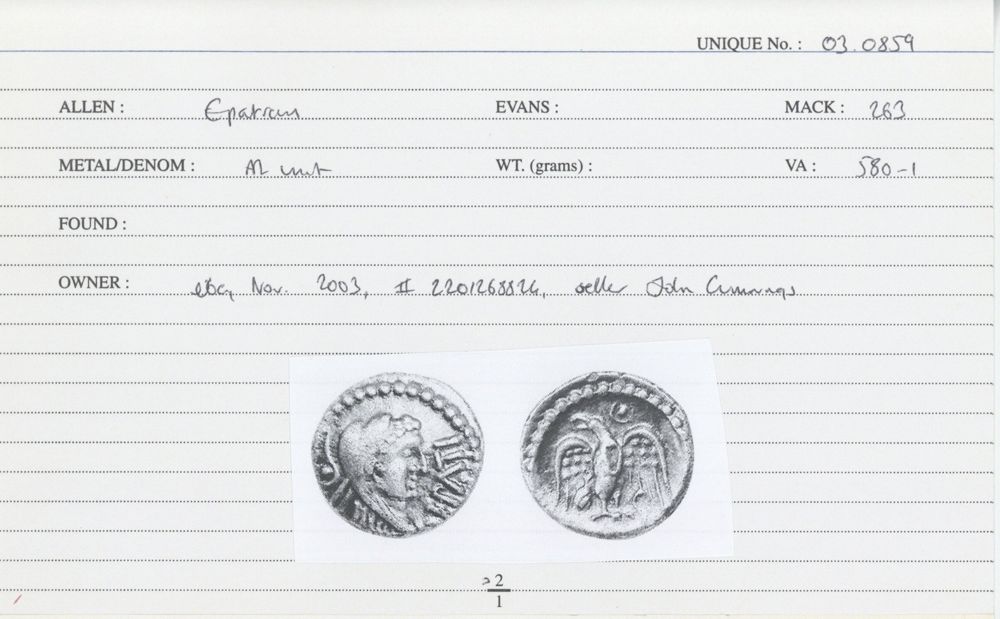 UNIQUE No. : 03.0859
ALLEN : Epaticcus EVANS : MACK : 263
METAL/DENOM : AR unit WT. (grams) : VA : 580-1
FOUND :
OWNER : ebay Nov. 2003, # 2201268824, seller John Cummings
>2
1